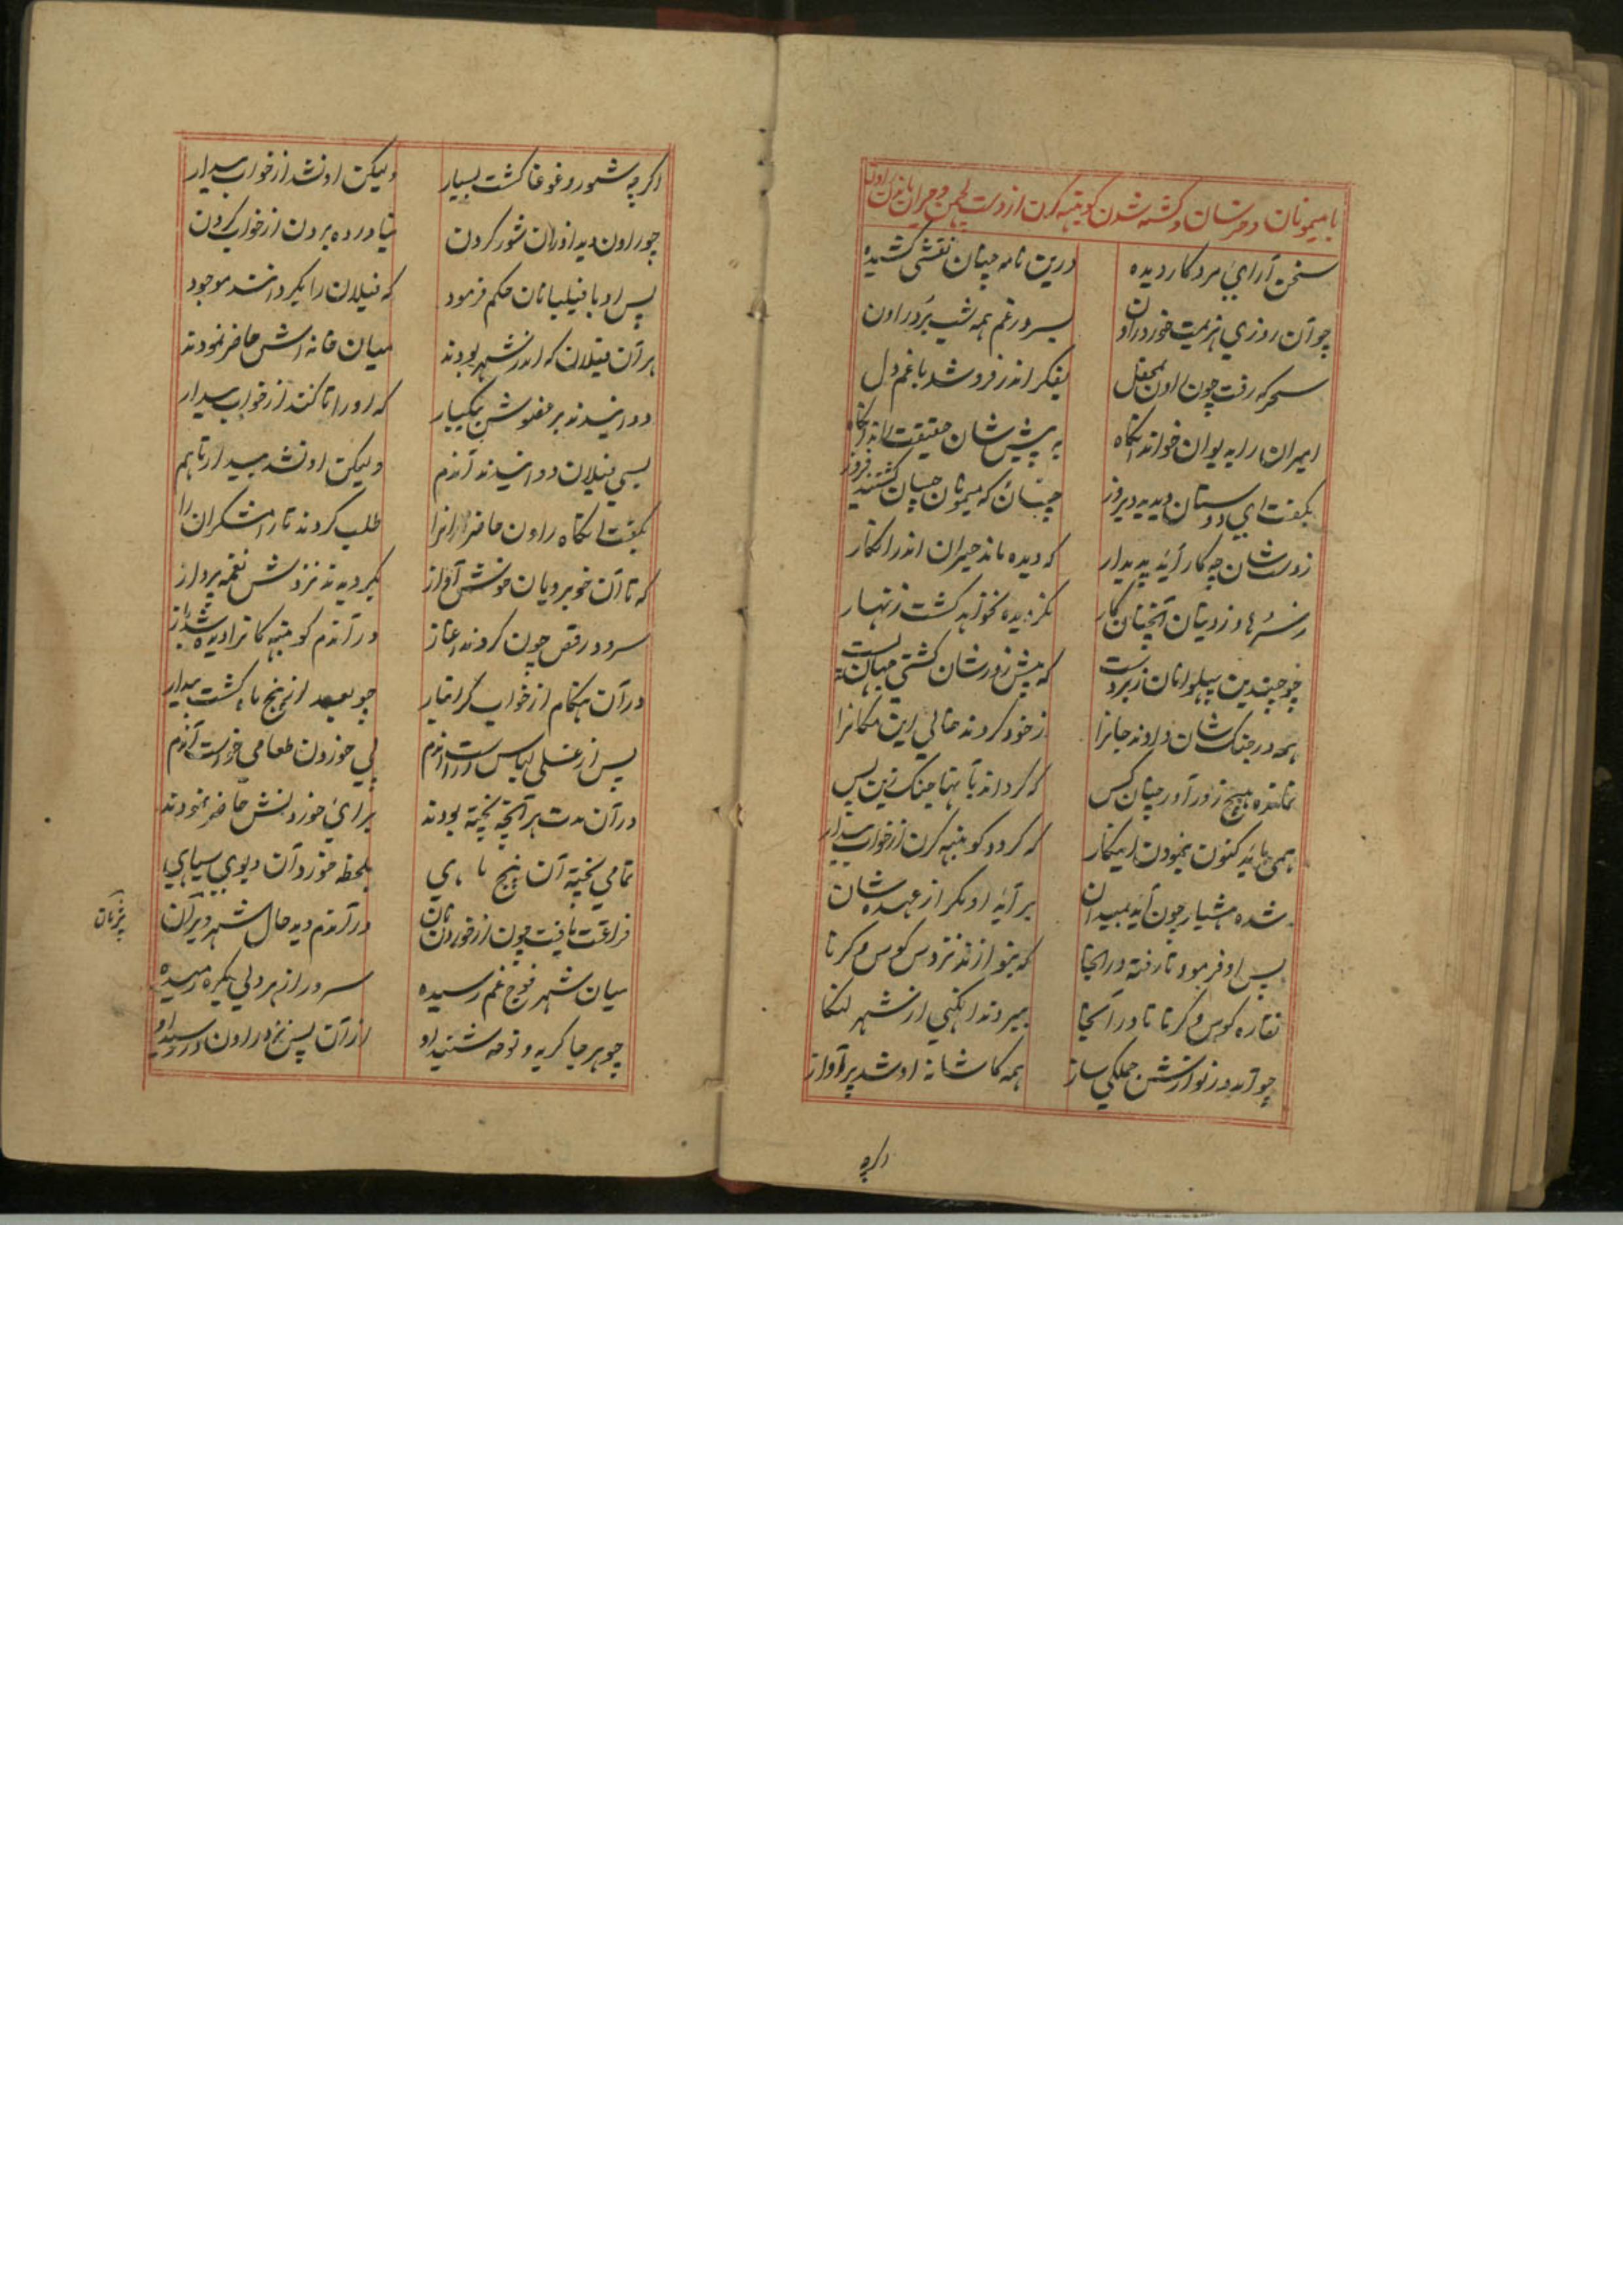 با میمونان و خرسان و کشته شدن کونبهه کرن از دست لچهمن و حیران ماندن راون
سخن آرای مرد کار دیده درین نامه چنان نقشی کشیده
چو آن روزی هزیمت خورد راون بسر در غم همه شب برد راون
سحر که رفت چون راون بمحفل بفکر اندر فرو شد با غم دل
امیران را به یوان خواند آنگاه به پیش شان حقیقت راند آنگاه
بگفت ای دوستان دیدید دیروز چنان که میمونان چسان گشتند فیروز
ز دست شان چه کار آید پدیدار که دیده ماند حیران اندر انکار
ز سرها و ز دستان آنچنان کار نگردیده نخواهد گشت زنهار
چو چندین پهلوانان زبردست که پیش زورشان گشتی جهان پست
همه در جنگ شان دادند جانرا ز خود کردند خالی این مکانرا
نمانده هیچ زور آور چنان کس که گرداند با آنها جنگ زین پس
همی باید کنون نمودن اینکار که گردد کونبهه کرن از خواب بیدار
شده هشیار چون آید بمیدان برآید او مگر از عهده شان
پس او فرمود تا رفته در انجا که بنوازند نزدش کوس و کرنا
نقاره کوس و کرنا تا در آنجا ببردند انگهی از شهر لنکا
چو آمد در نوازش جملگی ساز همه کاشانه او شد پر آواز
اگرچه
اگرچه شور و غوغا گشت بسیار ولیکن او نشد از خواب بیدار
چو راون دید از ان شور کردن نیاورده برون از خواب گردن
پس او با فیلبانان حکم فرمود که فیلان را بگردانند موجود
هر آن فیلان که اندر شهر بودند میان خانه اش حاضر نمودند
دوانیدند بر عضوش بیکبار که او را تا کنند از خواب بیدار
بسی فیلان دوانیدند آندم ولیکن او نشد بیدار تا هم
بگفت انگاه راون حاضرانرا طلب کردند تا رامشگران را
که تا آن خوبرویان خوش آواز بگردیدند نزدش نغمه پرداز
سرود و رقص چون کردند آغاز در آندم کونبهه کانرا دیده شد باز
در آن هنگام از خواب گرانبار چو بعد از پنج ماه گشت بیدار
پس از غسلی لباس آراست آندم پی خوردن طعامی خواست آندم
در آن مدت هر آنچه پخته بودند برای خوردنش حاضر نمودند
تمامی پخته آن پنج ماهی بلحظه خورد آن دیوی سیاهی
فراغت یافت چون از خوردن نان در آندم دید حال شهر ویران
میان شهر فوج غم رسیده سرور از هر دلی یکره رمیده
چو هر جا گریه و نوحه شنید او از آن پس نزد راون در رسید او